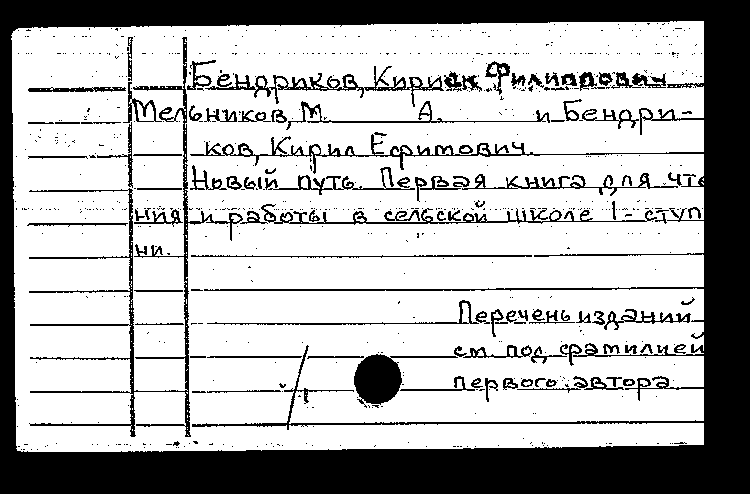 Бендриков, Кириак Филиппович
Мельников, М. А. и Бендри-
ков, Кирил Ефимович.
Новый путь. Первая книга для чте
ния и работы в сельской школе 1-ступ
ни.
Перечень изданий
см. под фамилией
первого автора